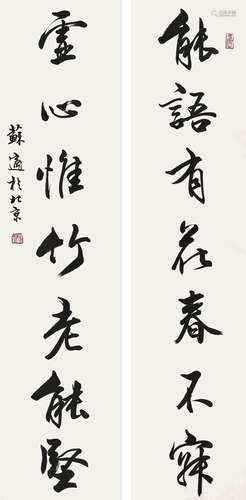 能語有花春不寐
虛心惟竹老能堅
蘇適於北京